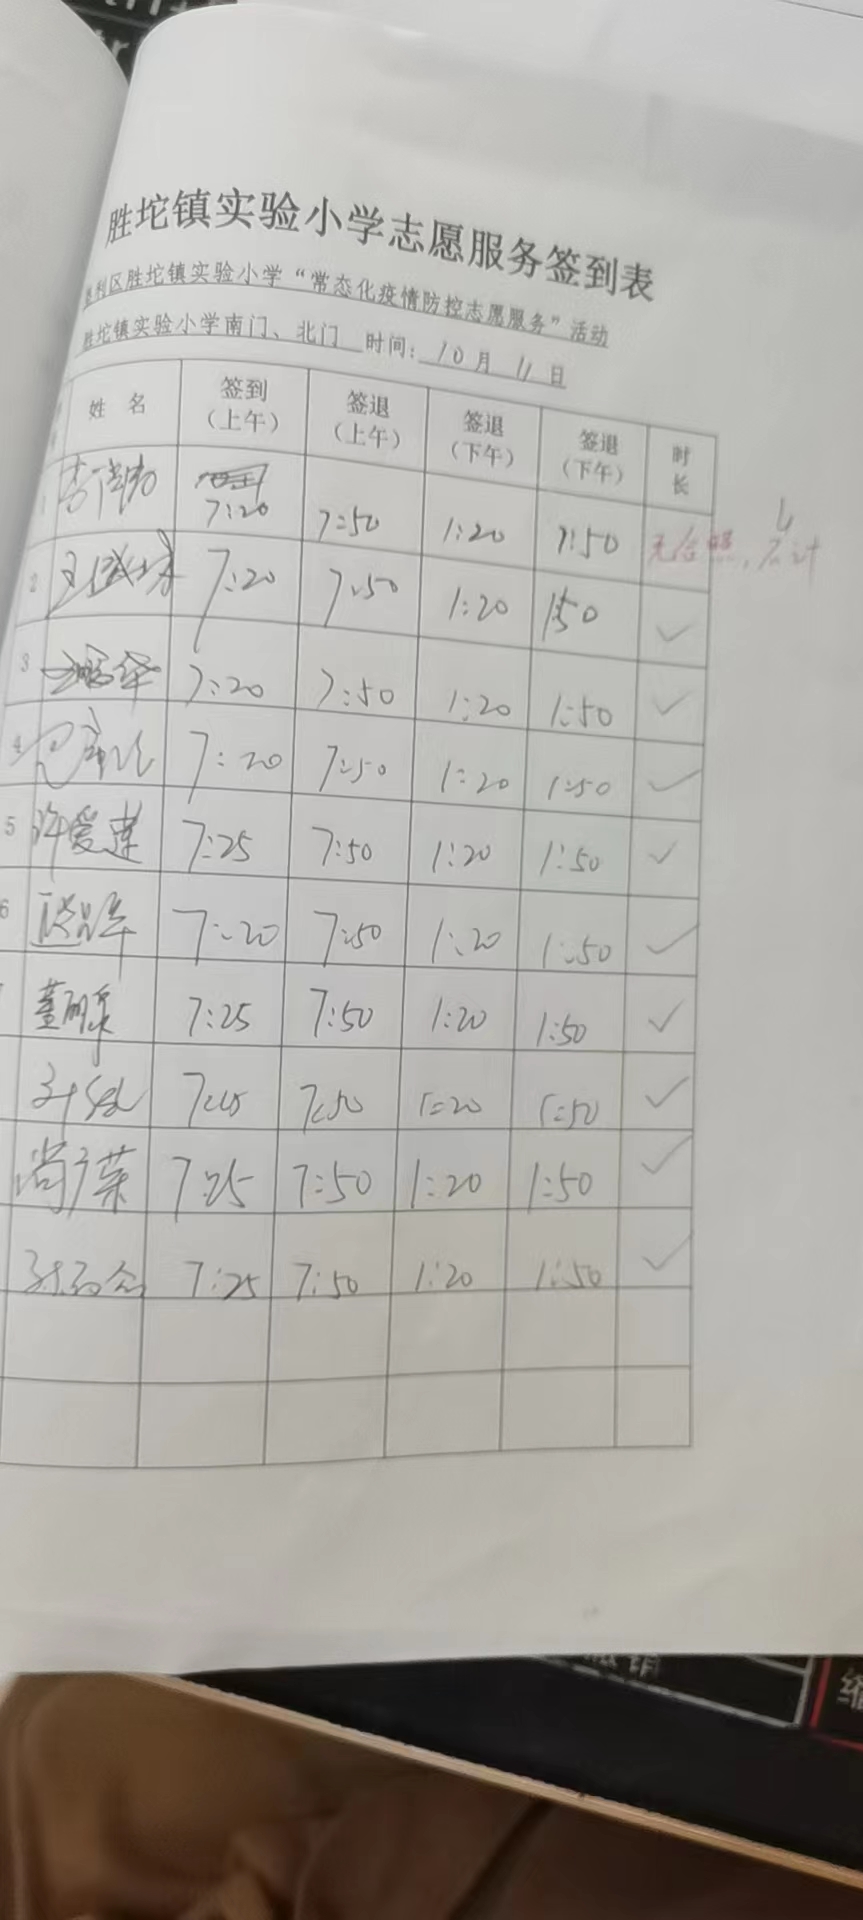 胜坨镇实验小学志愿服务签到表
利区胜坨镇实验小学“常态化疫情防控志愿服务”活动
胜坨镇实验小学南门、北门 时间：10月11日
姓 名 签到（上午） 签退（上午） 签退（下午） 签退（下午） 时长
1 7:20 7:50 1:20 1:50 无合照，不计
2 7:20 7:50 1:20 1:50 ✓
3 7:20 7:50 1:20 1:50 ✓
4 7:20 7:50 1:20 1:50 ✓
5 许爱莲 7:25 7:50 1:20 1:50 ✓
6 7:20 7:50 1:20 1:50 ✓
董丽泉 7:25 7:50 1:20 1:50 ✓
7:25 7:50 1:20 1:50 ✓
尚广荣 7:25 7:50 1:20 1:50 ✓
7:25 7:50 1:20 1:50 ✓